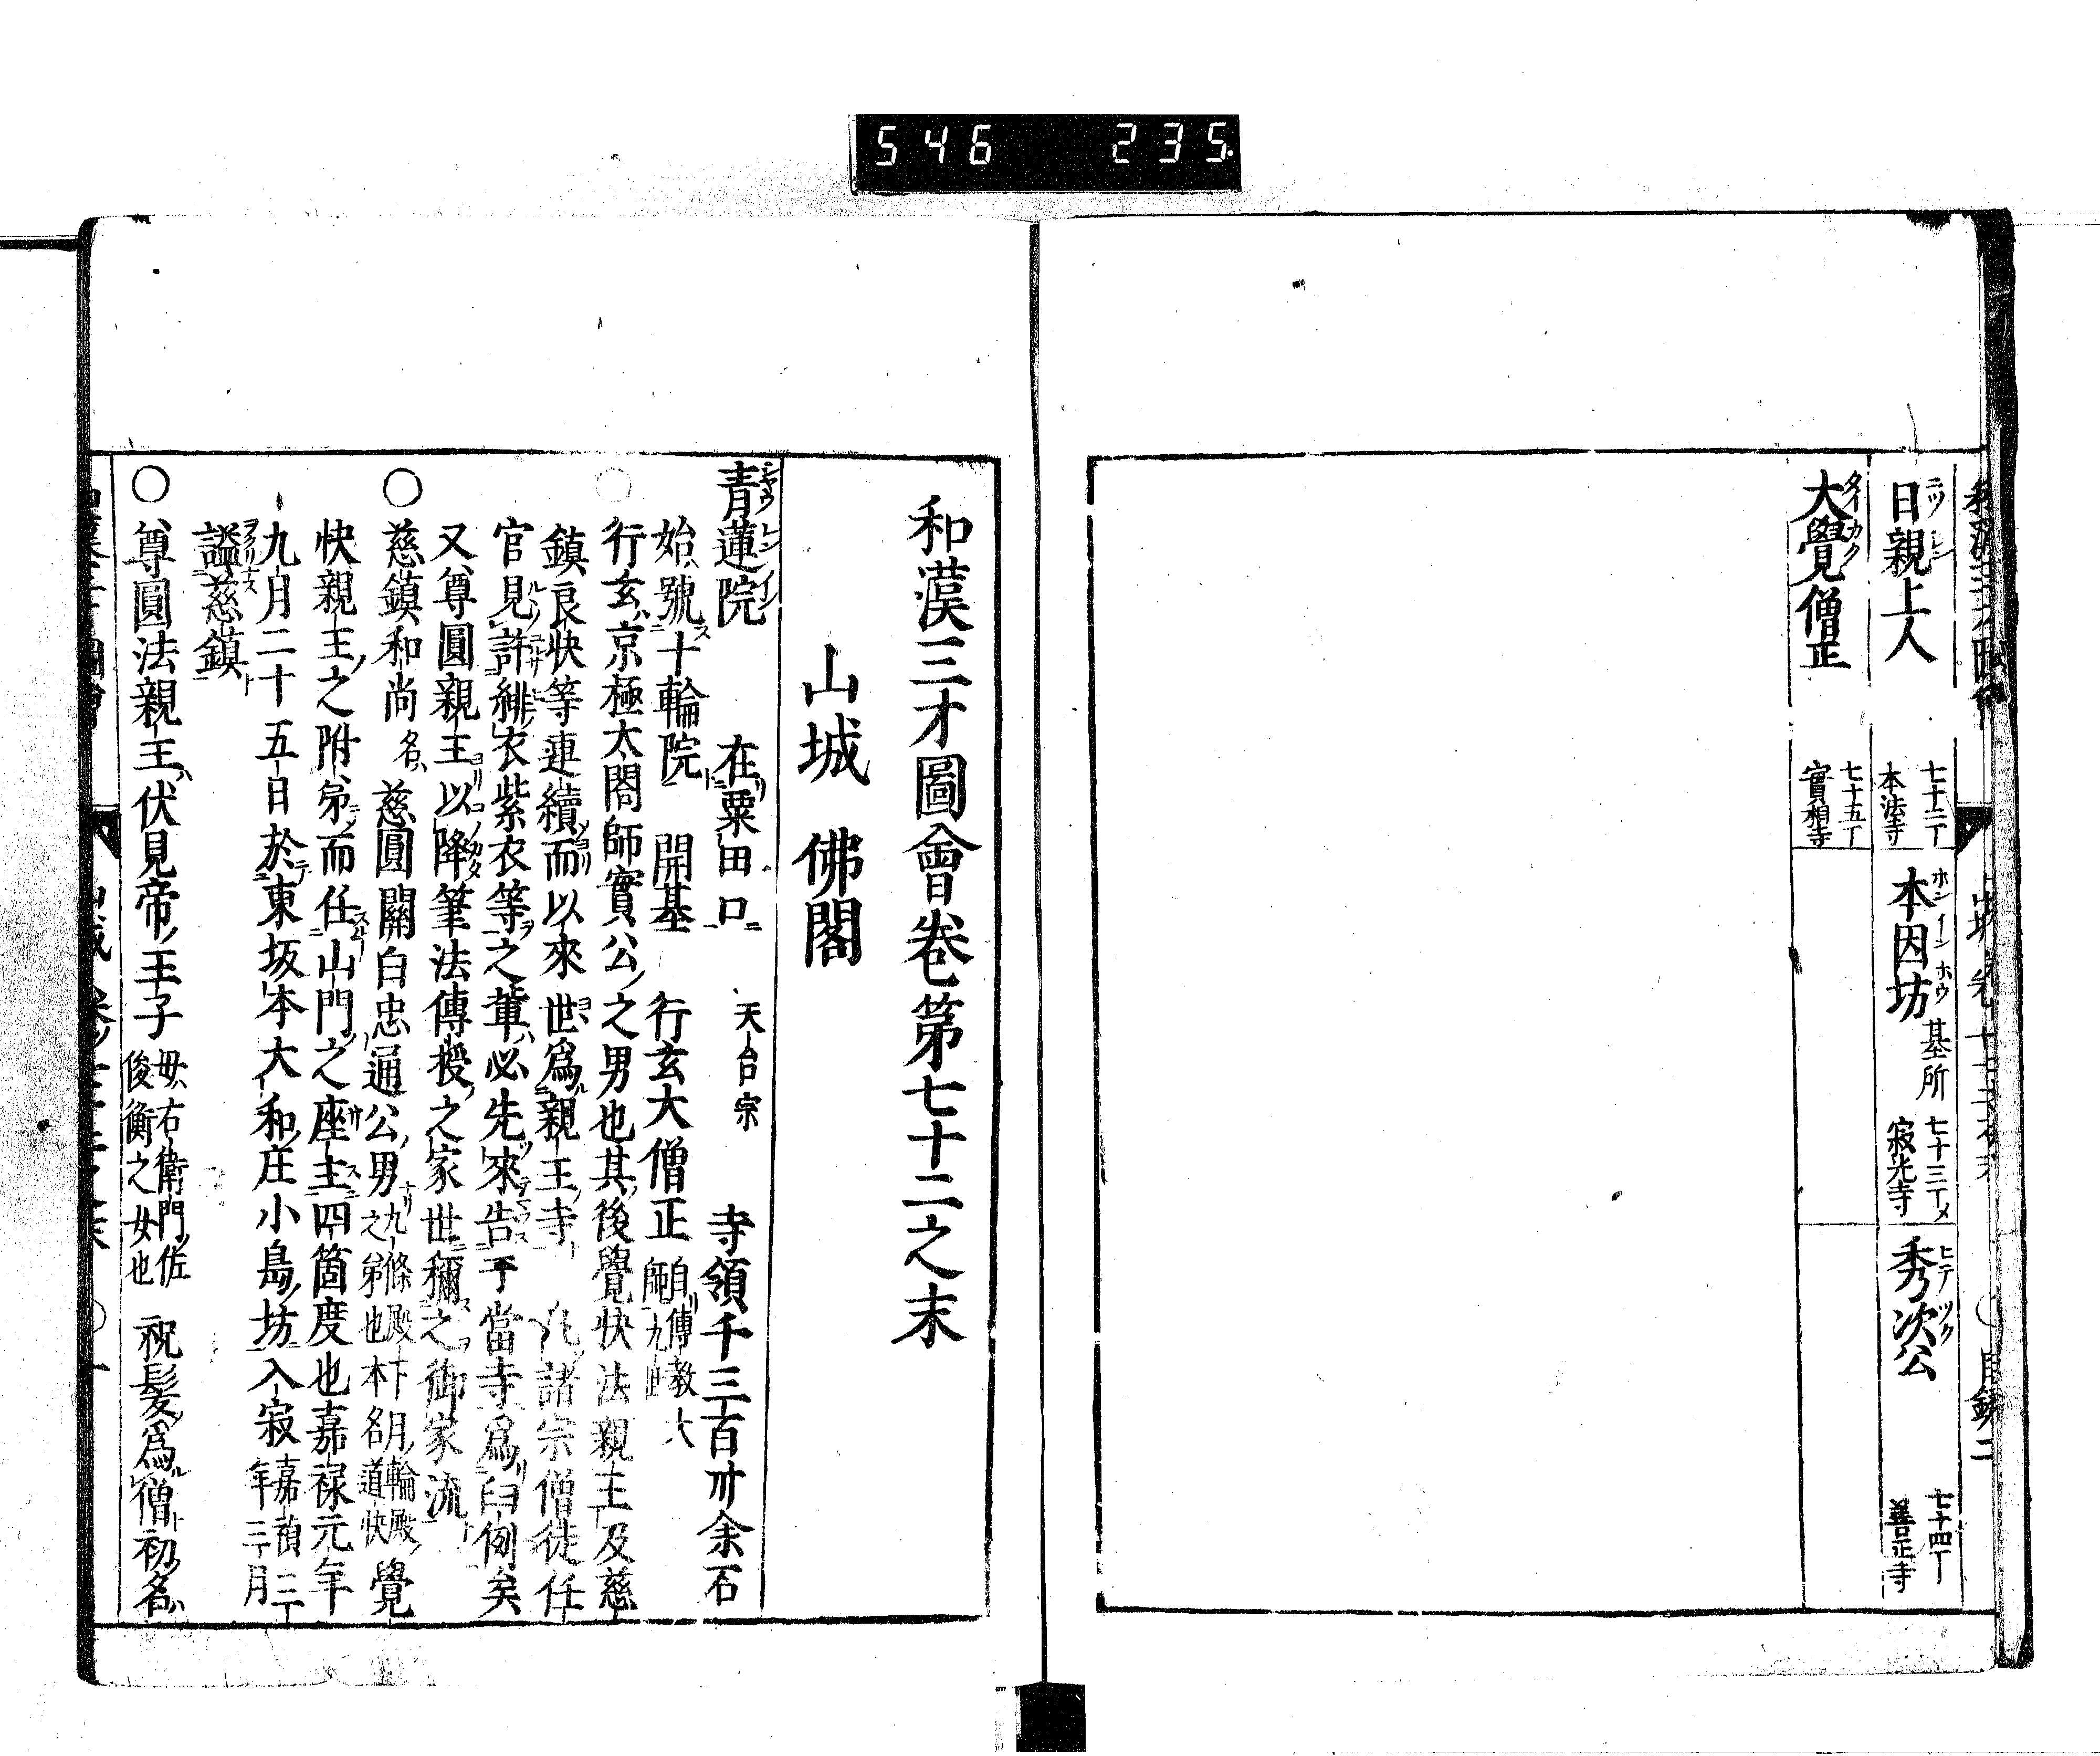 546 235
日親上人 七十二丁 本法寺
本因坊 基所 七十三丁メ 寂光寺
秀次公 七十四丁 善正寺
大覺僧正 七十五丁 實相寺
和漢三才圖會卷第七十二之末
山城 佛閣
青蓮院 在粟田口 天台宗 寺領千三百卅余石
始號十輪院 開基 行玄大僧正 自傳教大師九世
行玄京極太閤師實公之男也其後覺快法親王及慈
鎮良快等連續而以來世爲親王寺 凡諸宗僧徒任
官見許緋衣紫衣等之輩必先來告于當寺爲旧例矣
又尊圓親王以降筆法傳授之家世稱之御家流
○慈鎮和尚 名慈圓關白忠通公男 九條殿下月輪殿之弟也本名道快 覺
快親王之附弟而任山門之座主四箇度也嘉禄元年
九月二十五日於東坂本大和庄小島坊入寂 嘉禎三年三月
謚慈鎮
○尊圓法親王伏見帝王子 母右衛門佐俊衡之女也 祝髮爲僧初名